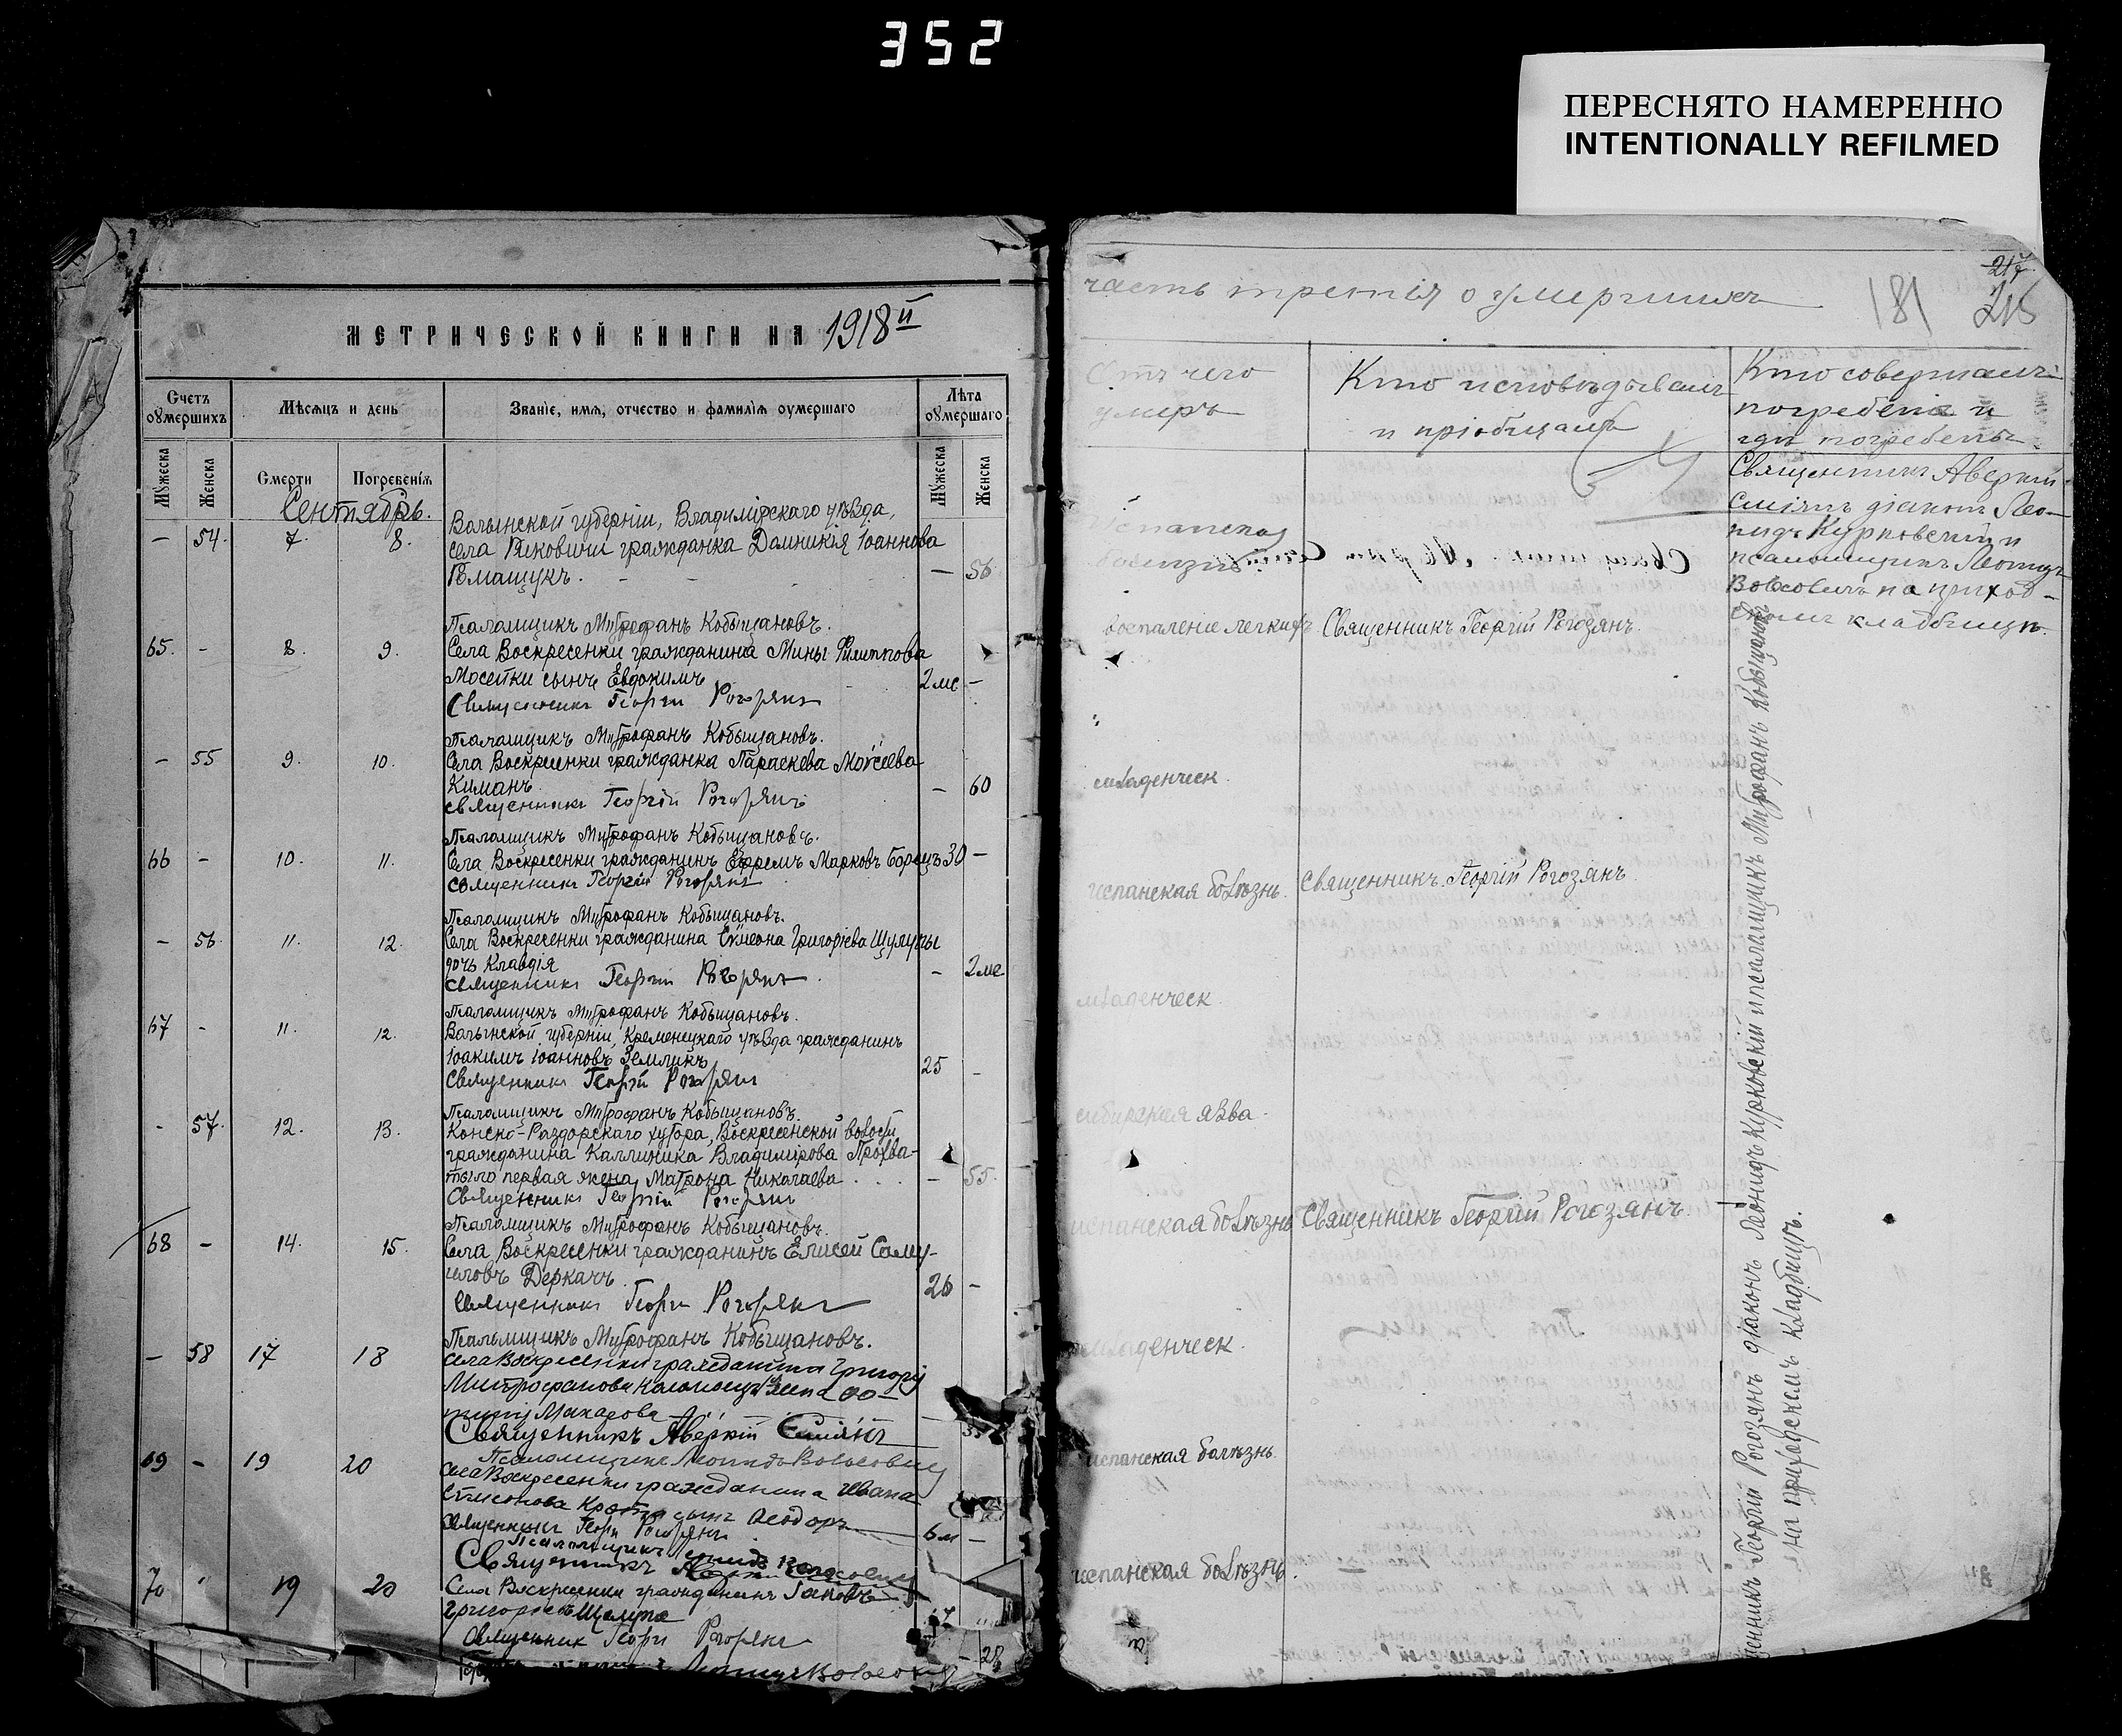 352
ПЕРЕСНЯТО НАМЕРЕННО
INTENTIONALLY REFILMED
МЕТРИЧЕСКОЙ КНИГИ НА 1918 г
Счетъ оумершихъ
Мѣсяцъ и день
Званіе, имя, отчество и фамилія оумершаго
Лѣта оумершаго
Мужеска
Женска
Смерти
Погребенія
Мужеска
Женска
Сентябрь.
Волынской губерніи, Владимірскаго уѣзда,
— 54. 7. 8. села гражданка Домникія Іоаннова
— 56
Псаломщикъ Митрофанъ Кобыщановъ.
65. - 8. 9. Села Воскресенки гражданина Мины Филиппова
Мосейки сынъ Евдокимъ 2 мс —
Священникъ Георгій Рогозянъ
Псаломщикъ Митрофанъ Кобыщановъ.
— 55 9. 10. Села Воскресенки гражданка Параскева Моѵсеева
Киманъ. — 60
Священникъ Георгій Рогозянъ
Псаломщикъ Митрофанъ Кобыщановъ.
66 - 10. 11. Села Воскресенки гражданинъ Ефремъ Марковъ Борецъ 30 —
Священникъ Георгій Рогозянъ
Псаломщикъ Митрофанъ Кобыщановъ.
— 56. 11. 12. Села Воскресенки гражданина Сѵмеона Григоріева Щулупы
дочь Клавдія — 2 мс
Священникъ Георгій Рогозянъ.
Псаломщикъ Митрофанъ Кобыщановъ.
67 - 11. 12. Волынской губерніи, Кременецкаго уѣзда гражданинъ
Іоакимъ Іоанновъ Землякъ 25 —
Священникъ Георгій Рогозянъ
Псаломщикъ Митрофанъ Кобыщановъ.
- 57. 12. 13. Конско-Раздорскаго хутора, Воскресенской волости
гражданина Каллиника Владимірова Прохва-
тыло первая жена Матрона Николаева . . . — 55.
Священникъ Георгій Рогозянъ
Псаломщикъ Митрофанъ Кобыщановъ.
68 - 14. 15. Села Воскресенки гражданинъ Елисей Саму-
иловъ Деркачъ. 26 —
Священникъ Георгій Рогозянъ
Псаломщикъ Митрофанъ Кобыщановъ.
— 58 17 18 Села Воскресенки гражданина Григорія
Митрофанова жена
Макарова
Священникъ Аверкій
69 - 19 20 Псаломщикъ Леонидъ Волосовичъ
Села Воскресенки гражданина Ивана
Симонова сынъ Ѳеодоръ 6 м —
Священникъ Георгій Рогозянъ
Псаломщикъ Леонидъ Волосовичъ
Священникъ
70 19 20 Села Воскресенки гражданинъ Іаковъ
Григорьевъ Щулупа
Священник Георгій Рогозянъ
28
часть третія о умершихъ
181
217
216
Отъ чего
умеръ
Кто исповѣдывалъ
и пріобщалъ
Кто совершалъ
погребеніе и
гдѣ погребены.
испанская
болѣзнь
Священникъ Аверкій
діаконъ Лео-
нидъ Курковскій и
псаломщикъ Леонидъ
Волосовичъ на приход-
скомъ кладбищѣ.
воспаленіе легкихъ Священникъ Георгій Рогозянъ
младенческ.
испанская болѣзнь. Священникъ Георгій Рогозянъ.
младенческ.
сибирская язва.
испанская болѣзнь Священникъ Георгій Рогозянъ
младенческ.
испанская болѣзнь.
испанская болѣзнь.
Священникъ Георгій Рогозянъ діаконъ Леонидъ Курковскій и псаломщикъ Митрофанъ Кобыщановъ
на приходскомъ кладбищѣ.